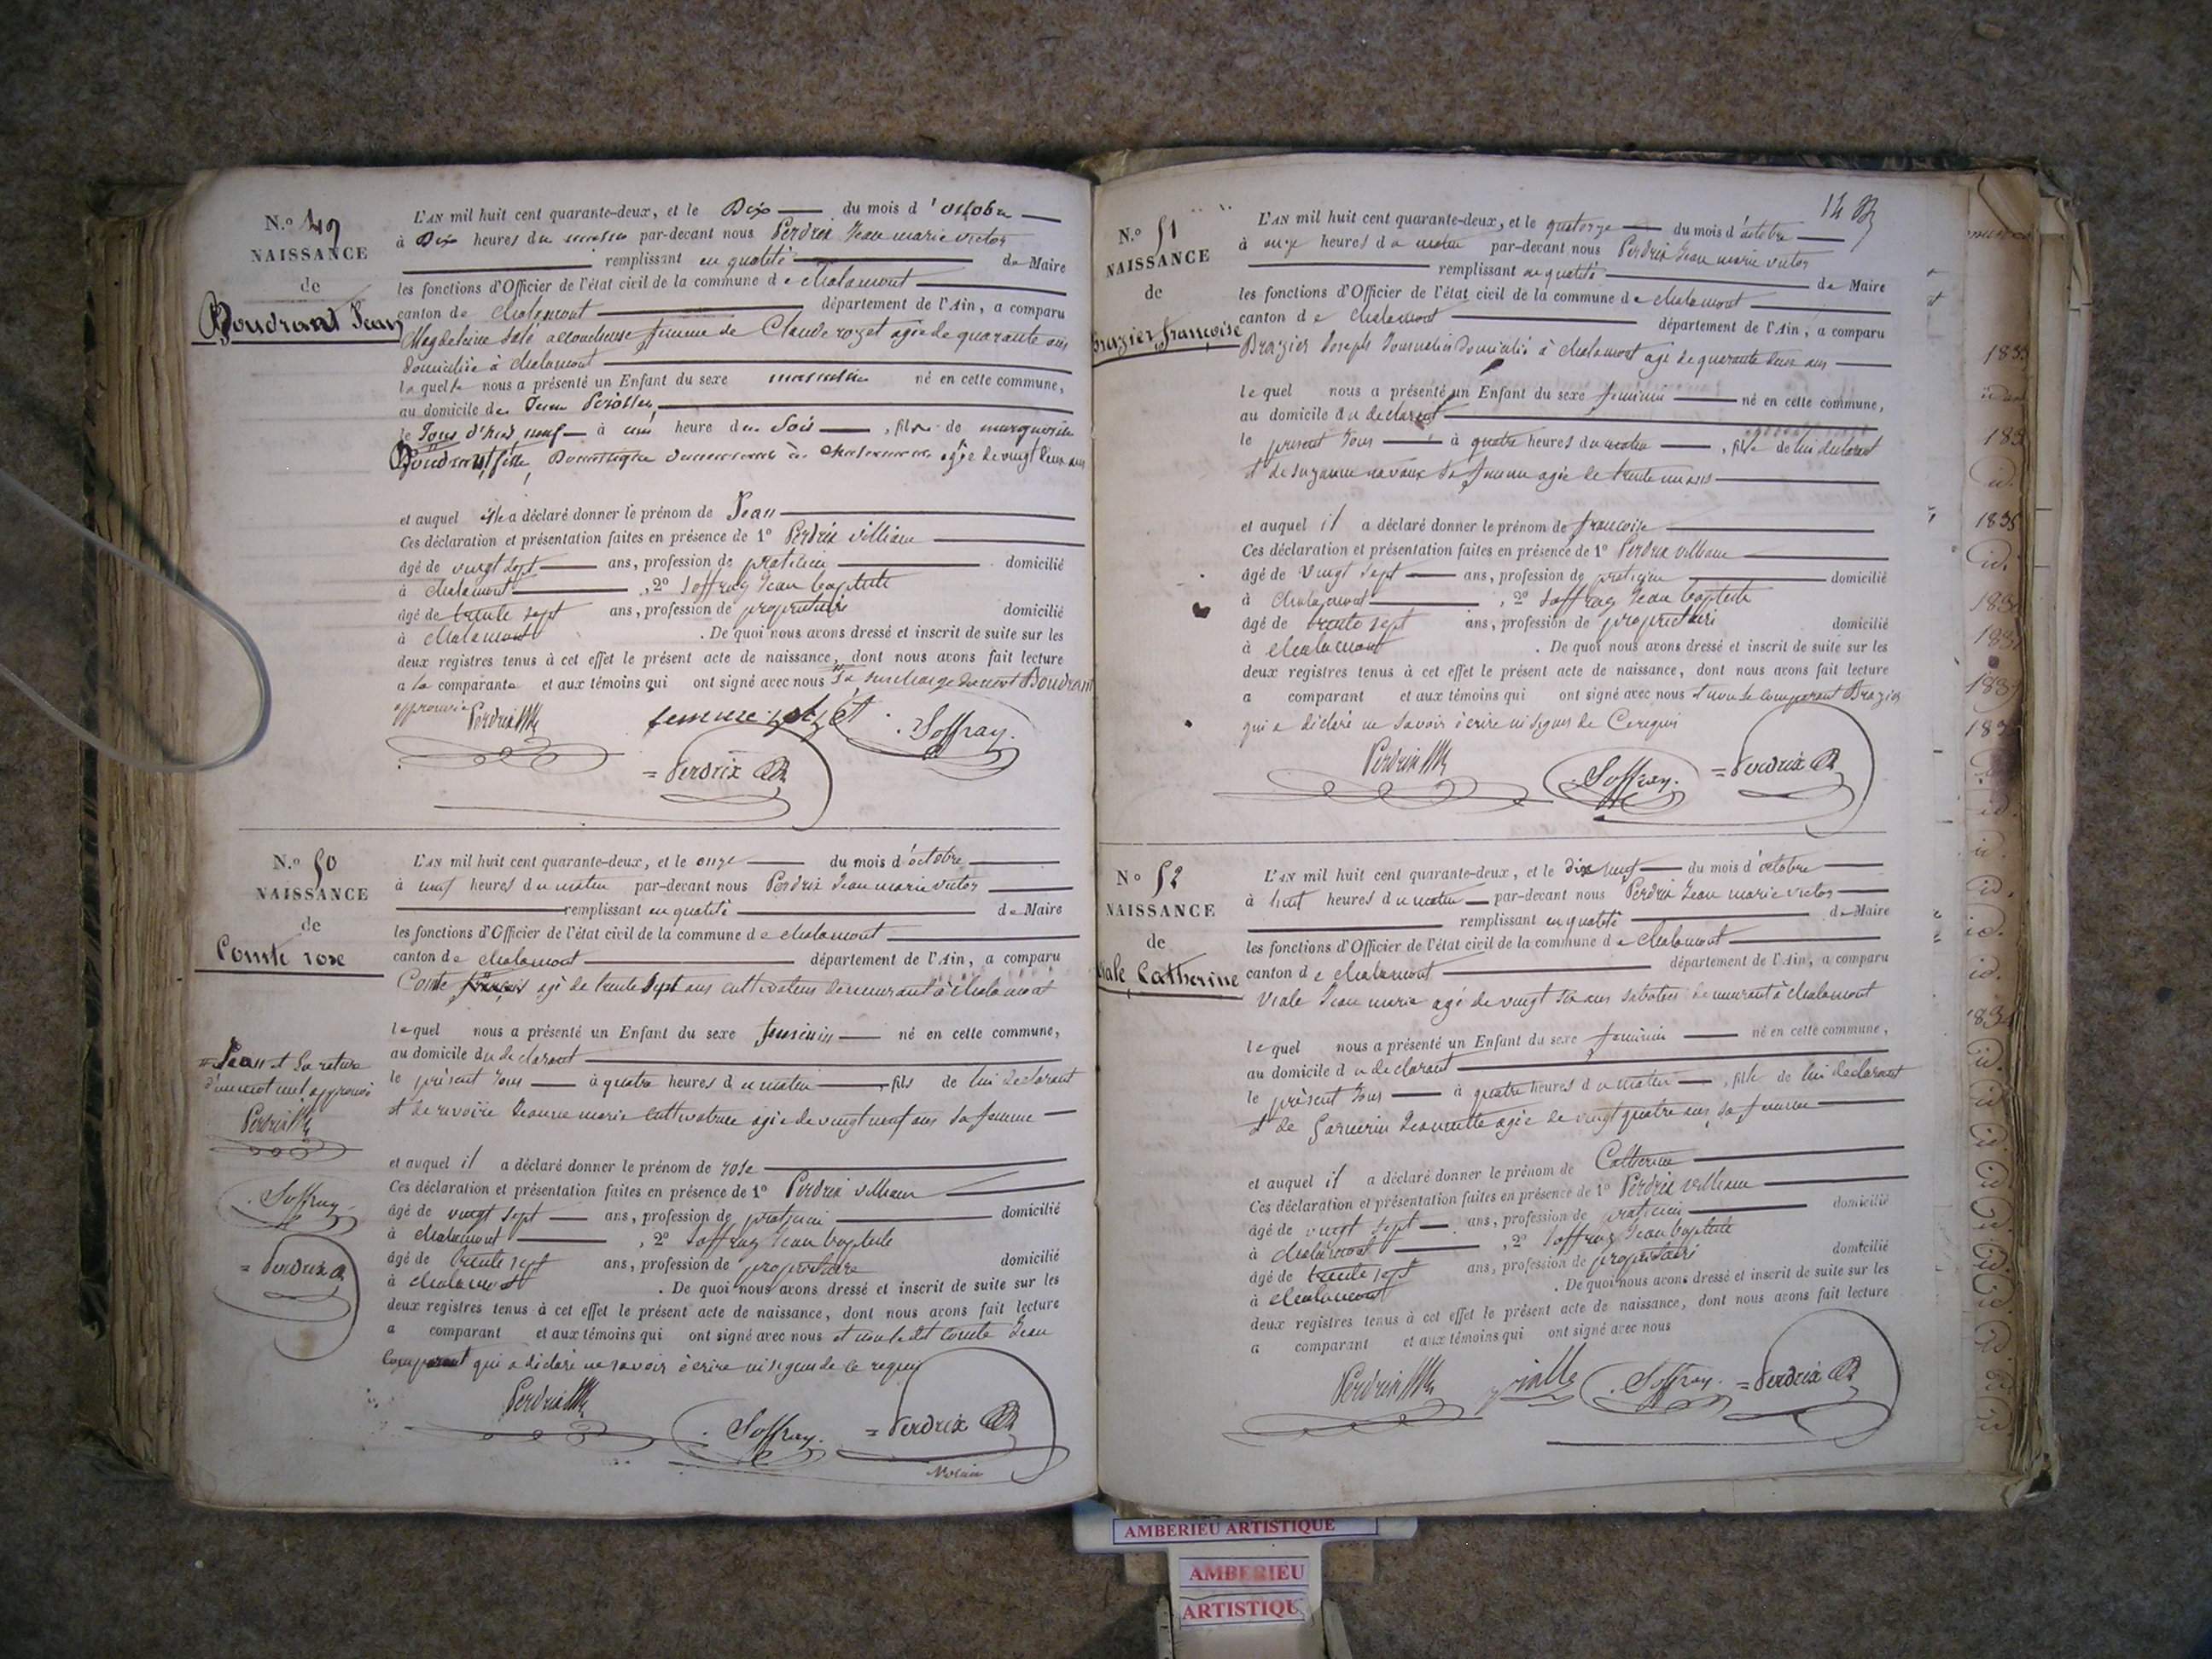 N.º 49
NAISSANCE
de
Boudrant Jean
L'AN mil huit cent quarante-deux, et le Dix du mois d'octobre
à Dix heures du matin par-devant nous Perdrix Jean marie victor
remplissant en qualité de Maire
les fonctions d'Officier de l'état civil de la commune de chalamont
canton de chalamont département de l'Ain, a comparu
Magdeleine accoucheuse femme de Claude rozet agée de quarante ans
domiciliée à chalamont
laquelle nous a présenté un Enfant du sexe masculin né en cette commune,
au domicile de Jean
le Jour d'hier neuf à une heure du Soir, fils de marguerite
Boudrant fille, Domestique demeurant à chalamont agée de vingt deux ans
et auquel elle a déclaré donner le prénom de Jean
Ces déclaration et présentation faites en présence de 1º Perdrix villiam
âgé de vingt sept ans, profession de praticien domicilié
à chalamont, 2º Soffray Jean baptiste
âgé de trente sept ans, profession de propriétaire domicilié
à chalamont. De quoi nous avons dressé et inscrit de suite sur les
deux registres tenus à cet effet le présent acte de naissance, dont nous avons fait lecture
a la comparante et aux témoins qui ont signé avec nous la surcharge du mot Boudrant
approuvée
Perdrix femme rozet Soffray
= Perdrix
N.º 50
NAISSANCE
de
Comte rose
L'AN mil huit cent quarante-deux, et le onze du mois d'octobre
à neuf heures du matin par-devant nous Perdrix Jean marie victor
remplissant en qualité de Maire
les fonctions d'Officier de l'état civil de la commune de chalamont
canton de chalamont département de l'Ain, a comparu
Comte françois agé de trente Sept ans cultivateur demeurant à chalamont
lequel nous a présenté un Enfant du sexe feminin né en cette commune,
au domicile du declarant
le présent Jour à quatre heures du matin, fils de lui declarant
et de ravoire Jeanne marie cultivatrice agée de vingt neuf ans sa femme
et auquel il a déclaré donner le prénom de rose
Ces déclaration et présentation faites en présence de 1º Perdrix villiam
âgé de vingt sept ans, profession de praticien domicilié
à chalamont, 2º Soffray Jean baptiste
âgé de trente sept ans, profession de propriétaire domicilié
à chalamont. De quoi nous avons dressé et inscrit de suite sur les
deux registres tenus à cet effet le présent acte de naissance, dont nous avons fait lecture
a comparant et aux témoins qui ont signé avec nous et non ledit Comte Jean
comparant qui a déclaré ne savoir écrire ni signer de ce requis
Perdrix Soffray = Perdrix
= Jean et la rature
d'un mot nul approuvé
Perdrix
Soffray
= Perdrix
14
N.º 51
NAISSANCE
de
Brazier françoise
L'AN mil huit cent quarante-deux, et le quatorze du mois d'octobre
à onze heures du matin par-devant nous Perdrix Jean marie victor
remplissant en qualité de Maire
les fonctions d'Officier de l'état civil de la commune de chalamont
canton de chalamont département de l'Ain, a comparu
Brazier Joseph Journalier domicilié à chalamont agé de quarante deux ans
lequel nous a présenté un Enfant du sexe feminin né en cette commune,
au domicile du declarant
le présent Jour à quatre heures du matin, fille de lui declarant
et de suzanne navaux Sa femme agée de trente un ans
et auquel il a déclaré donner le prénom de françoise
Ces déclaration et présentation faites en présence de 1º Perdrix villiam
âgé de vingt sept ans, profession de praticien domicilié
à chalamont, 2º Soffray Jean baptiste
âgé de trente sept ans, profession de propriétaire domicilié
à chalamont. De quoi nous avons dressé et inscrit de suite sur les
deux registres tenus à cet effet le présent acte de naissance, dont nous avons fait lecture
a comparant et aux témoins qui ont signé avec nous et non le comparant Brazier
qui a déclaré ne savoir écrire ni signer de Cerequis
Perdrix Soffray = Perdrix
Nº 52
NAISSANCE
de
iale Catherine
L'AN mil huit cent quarante-deux, et le dix neuf du mois d'octobre
à huit heures du matin par-devant nous Perdrix Jean marie victor
remplissant en qualité de Maire
les fonctions d'Officier de l'état civil de la commune de chalamont
canton de chalamont département de l'Ain, a comparu
Viale Jean marie agé de vingt six ans sabotier demeurant à chalamont
lequel nous a présenté un Enfant du sexe feminin né en cette commune,
au domicile du declarant
le présent Jour à quatre heures du matin, fille de lui declarant
et de Garnerin Jeannette agée de vingt quatre ans, sa femme
et auquel il a déclaré donner le prénom de Catherine
Ces déclaration et présentation faites en présence de 1º Perdrix villiam
âgé de vingt sept ans, profession de praticien domicilié
à chalamont, 2º Soffray Jean baptiste
âgé de trente sept ans, profession de propriétaire domicilié
à chalamont. De quoi nous avons dressé et inscrit de suite sur les
deux registres tenus à cet effet le présent acte de naissance, dont nous avons fait lecture
a comparant et aux témoins qui ont signé avec nous
Perdrix vialle Soffray = Perdrix
AMBERIEU ARTISTIQUE
AMBERIEU
ARTISTIQU